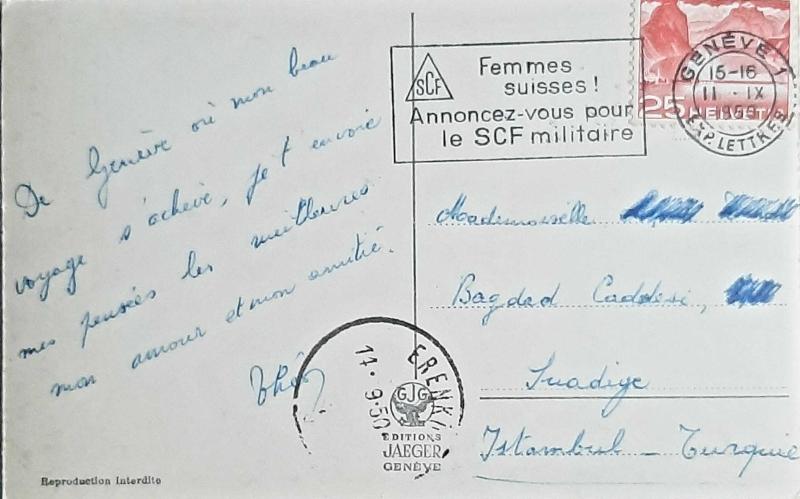 De Genève où mon beau
voyage s'achève, je t'envoie
mes pensées les meilleures
mon amour et mon amitié.
Reproduction Interdite
SCF
Femmes
suisses!
Annoncez-vous pour
le SCF militaire
25 HELVETIA
GENÈVE 1
15-16
11. IX
1950
EXP. LETTRES
Mademoiselle
Bagdad Caddesi,
Suadiye
Istambul - Turquie
ERENK
14.9.50
GJG
EDITIONS
JAEGER
GENÈVE